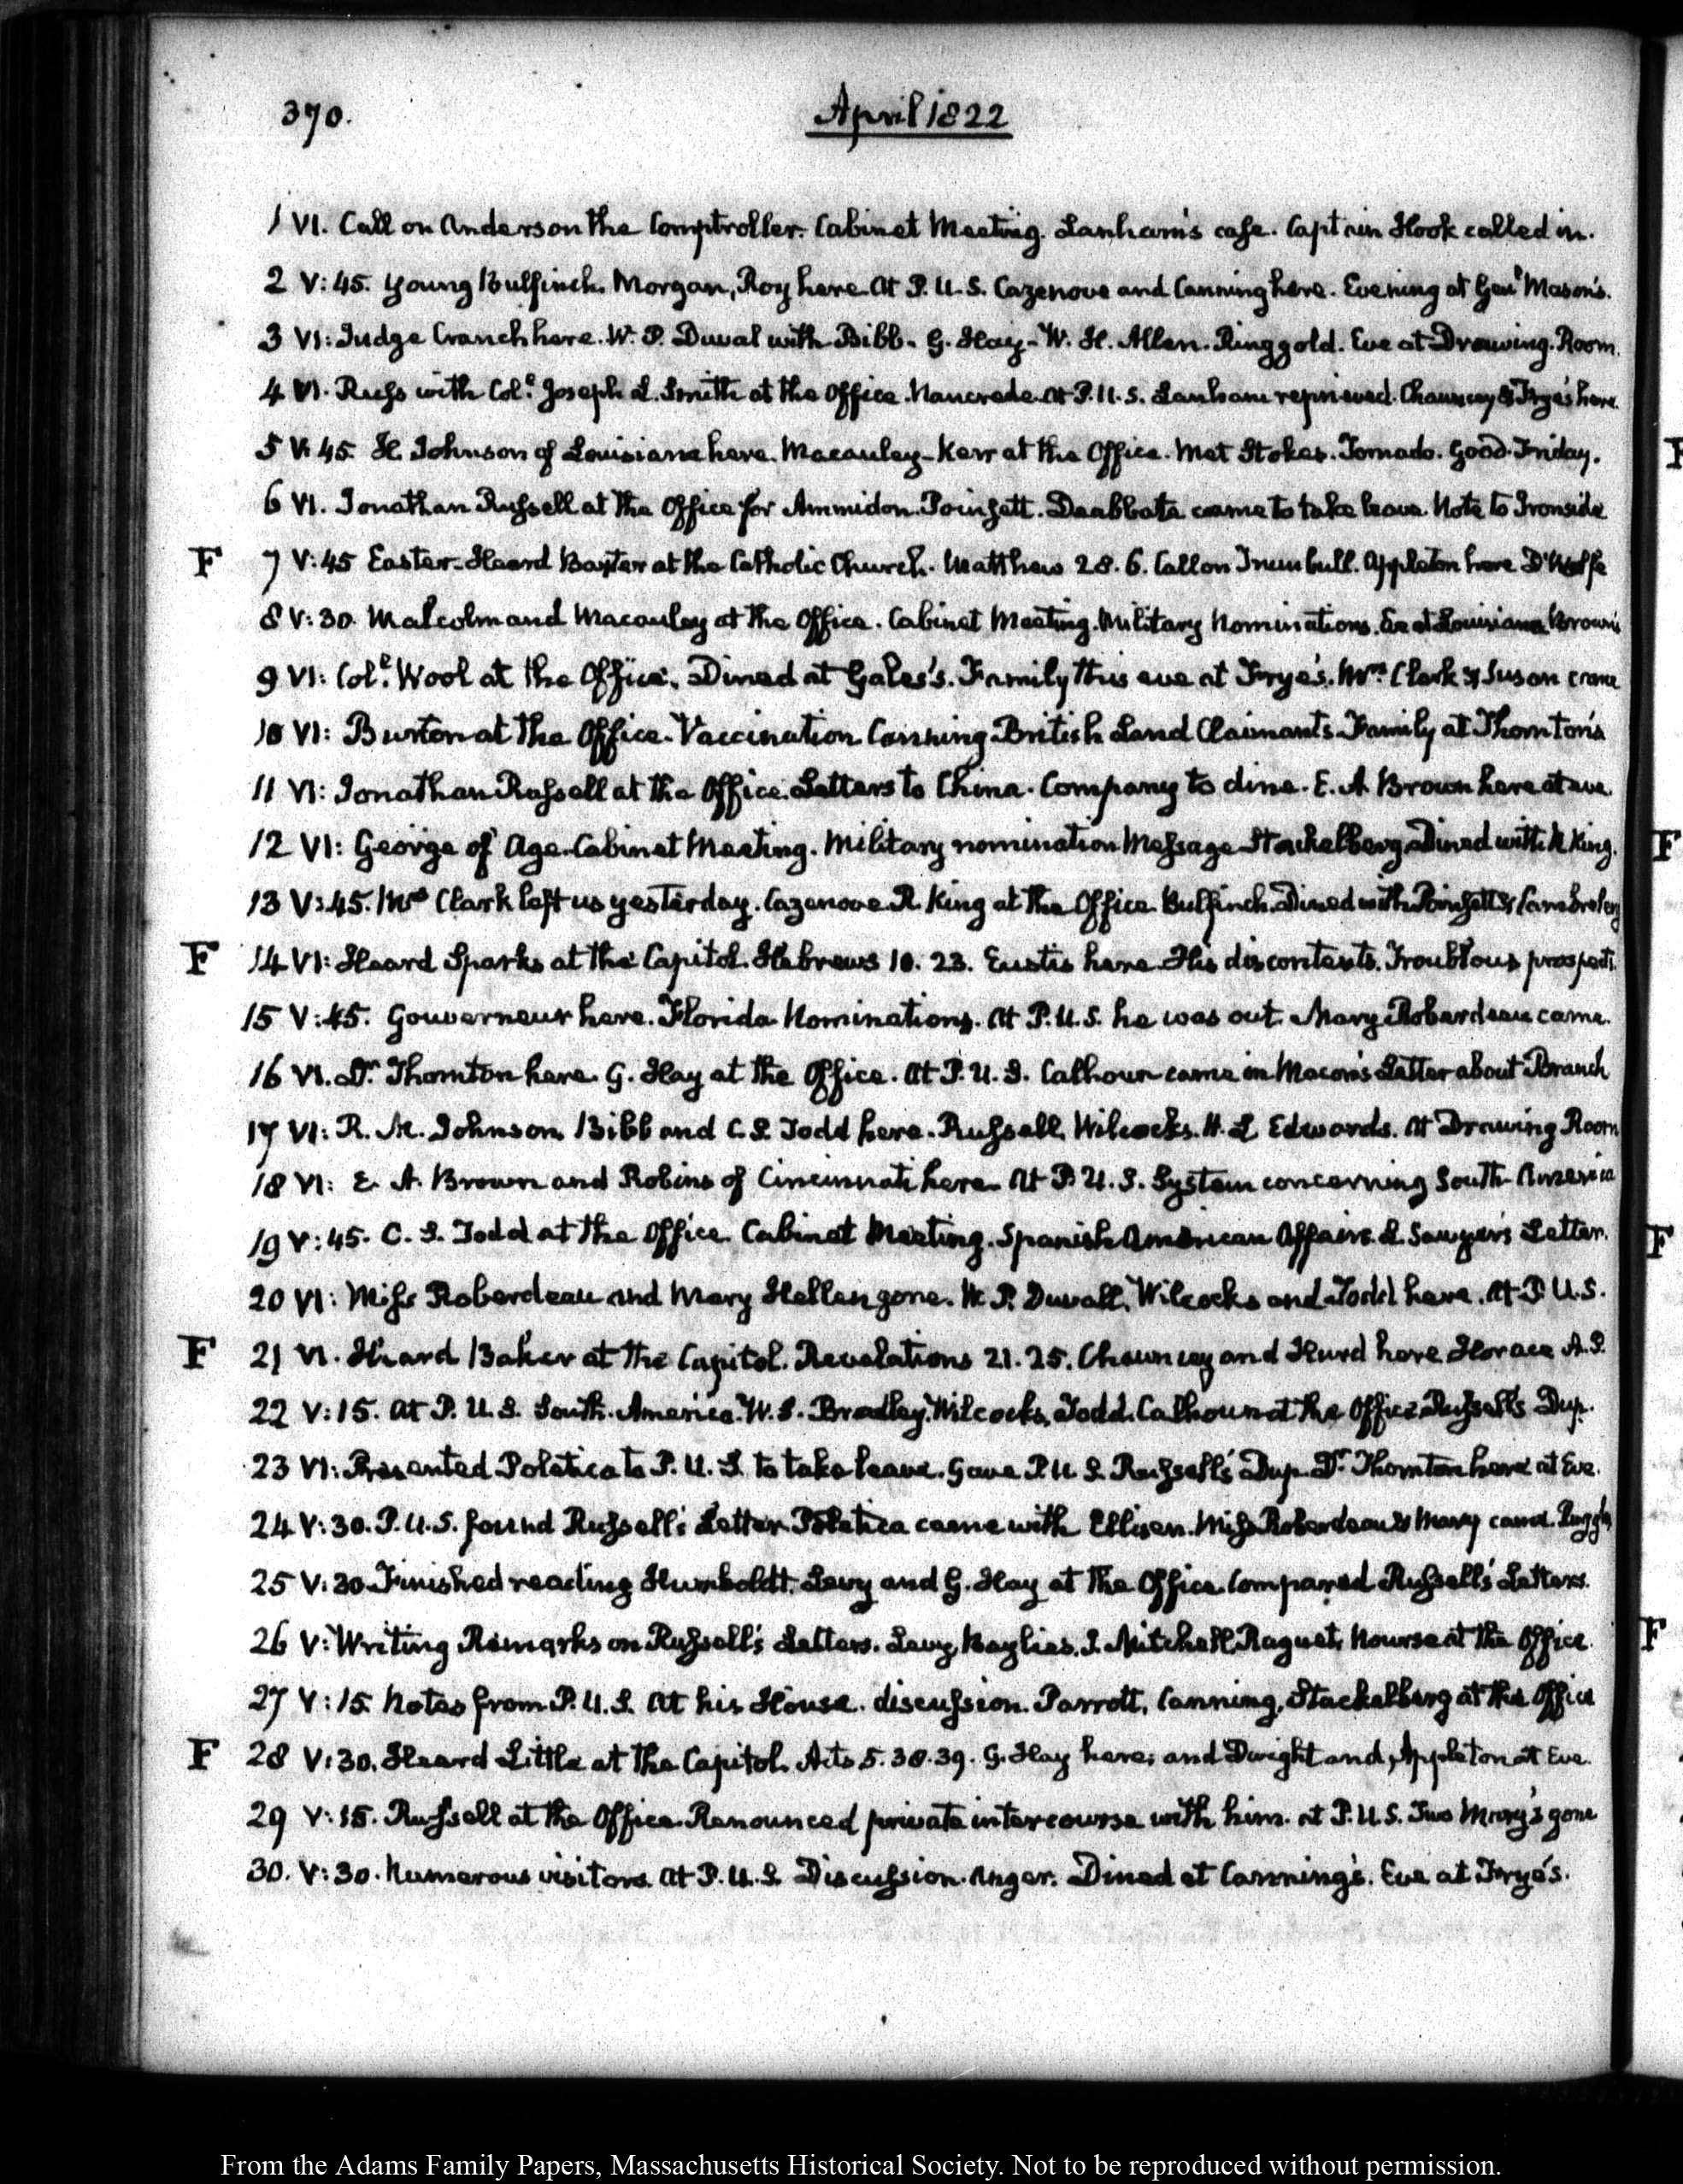 370.
April 1822
1 VI. Call on Anderson the Comptroller. Cabinet Meeting. Lanham's case. Captain Hook called in.
2 V:45. Young Bulfinch. Morgan, Roy here. At P. U. S. Cazenove and Canning here. Evening at Genl. Mason's.
3 VI: Judge Cranch here. W. P. Duval with Bibb. G. Hay. W. H. Allen. Ringgold. Eve at Drawing Room.
4 VI. Russ with Coll. Joseph L. Smith at the Office. Nancrede. At P. U. S. Lanham reprieved. Chauncey & Frye's here.
5 V:45. H. Johnson of Louisiana here. Macauley. Kerr at the Office. Met Stokes. Tornado. Good-Friday.
6 VI. Jonathan Russell at the Office for Ammidon. Poinsett. Deabbate came to take leave. Note to Ironside
F 7 V:45 Easter. Heard Baxter at the Catholic Church. Matthew 28. 6. Call on Trumbull. Appleton here D'Wolfe
8 V:30. Malcolm and Macauley at the Office. Cabinet Meeting. Military Nominations. Eve at Louisiana Brown's
9 VI: Coll. Wool at the Office. Dined at Gales's. Family this eve at Frye's. Mrs. Clark & Susan came
10 VI: Burton at the Office. Vaccination. Canning. British Land Claimants. Family at Thornton's
11 VI: Jonathan Russell at the Office. Letters to China. Company to dine. E. A. Brown here at eve.
12 VI: George of Age. Cabinet Meeting. Military nomination Message. Stackelberg. Dined with R King.
13 V:45. Mrs Clark left us yesterday. Cazenove. R. King at the Office. Bulfinch. Dined with Poinsett & Cambreleng
F 14 VI: Heard Sparks at the Capitol. Hebrews 10. 23. Eustis here. His discontents. Troublous prospects.
15 V:45. Gouverneur here. Florida Nominations. At P. U. S. he was out. Mary Roberdeau came.
16 VI. Dr. Thornton here. G. Hay at the Office. At P. U. S. Calhoun came in. Macon's Letter about Branch
17 VI: R. M. Johnson, Bibb and C. S. Todd here. Russell, Wilcocks. H. L Edwards. At Drawing Room
18 VI: E. A. Brown and Robins of Cincinnati here. At P. U. S. System concerning South-America
19 V:45. C. S. Todd at the Office. Cabinet Meeting. Spanish American Affairs. L. Sawyer's Letter.
20 VI: Miss Roberdeau and Mary Hellen gone. W. P. Duvall, Wilcocks and Todd here. At P U.S.
F 21 VI. Heard Baker at the Capitol. Revelations 21. 25. Chauncey and Hurd here Horace A. S.
22 V:15. At P. U. S. South-America. W. S. Bradley, Wilcocks, Todd. Calhoun at the Office. Russell's Dup.
23 VI: Presented Poletica to P. U. S. to take leave. Gave P. U. S. Russell's Dup. Dr. Thornton here at Eve.
24 V:30. P. U. S. found Russell's Letter. Poletica came with Ellisen. Miss Roberdeau & Mary came.
25 V:30. Finished reading Humboldt. Levy and G. Hay at the Office. Compared Russell's Letters.
26 V: Writing Remarks on Russell's Letters. Levy, Baylies, J. Mitchell, Raguet, Nourse at the Office.
27 V:15. Notes from P. U. S. At his House. discussion. Parrott, Canning, Stackelberg at the Office
F 28 V:30. Heard Little at the Capitol. Acts 5. 38. 39. G. Hay here; and Dwight and Appleton at Eve.
29 V:15. Russell at the Office. Renounced private intercourse with him. at P. U. S. Two Mary's gone
30. V:30. Numerous visitors. At P. U. S. Discussion. Anger. Dined at Canning's. Eve at Frye's.
F
F
F
F
From the Adams Family Papers, Massachusetts Historical Society. Not to be reproduced without permission.